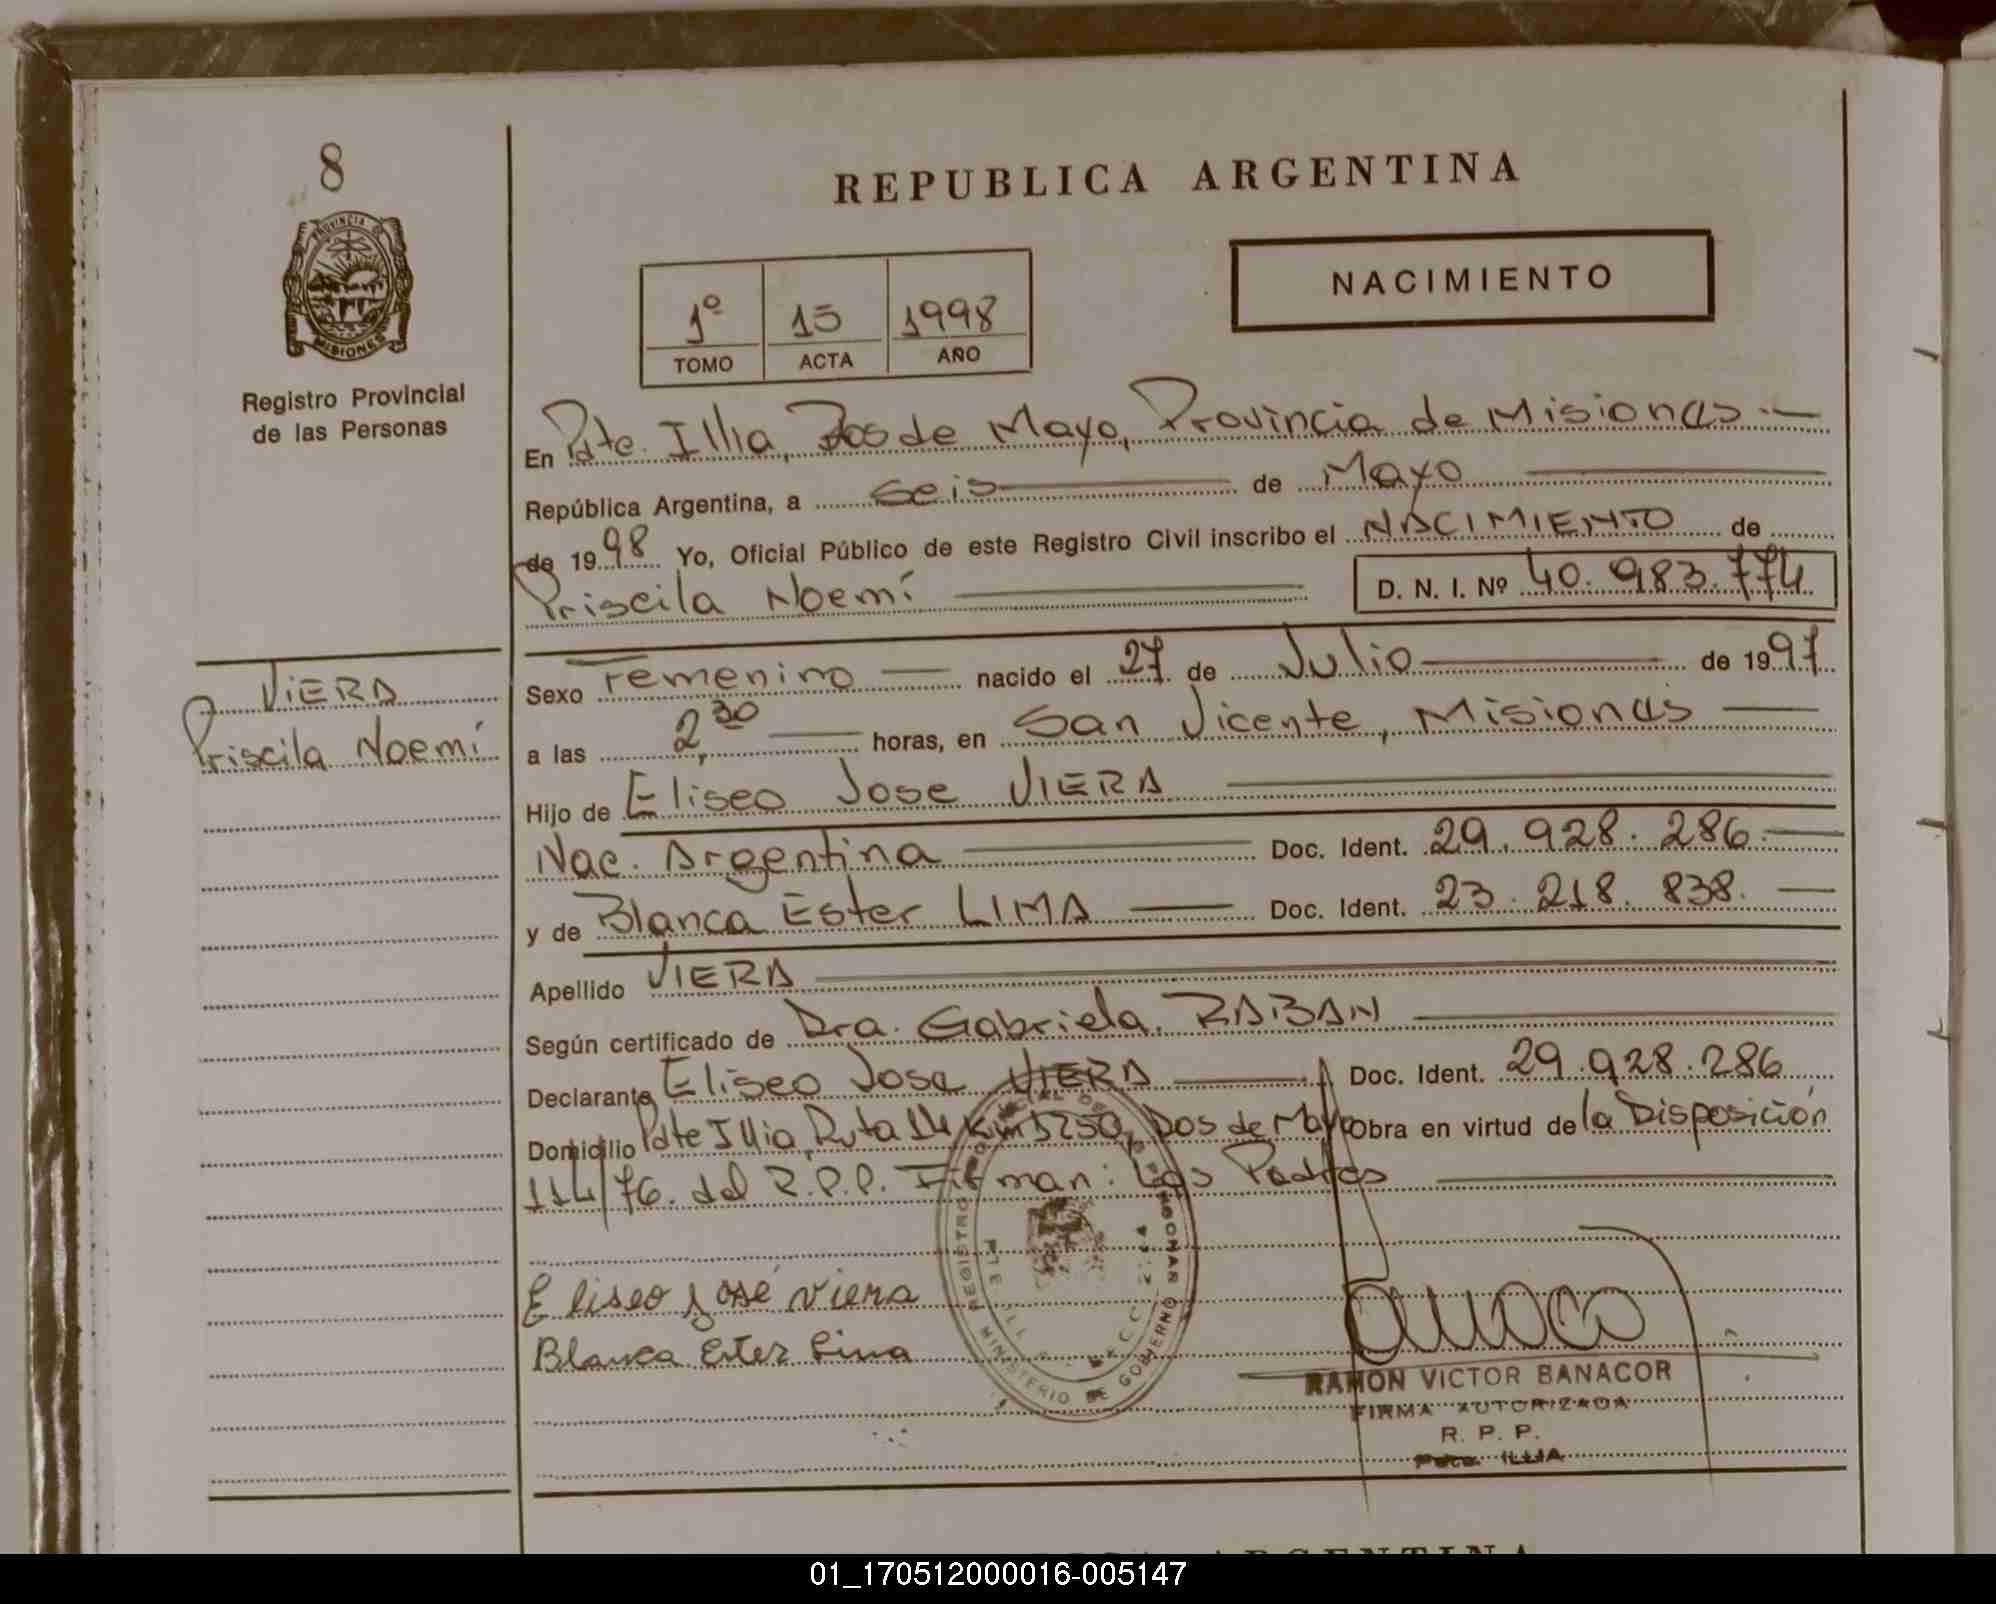 8
REPUBLICA ARGENTINA
PROVINCIA DE
MISIONES
Registro Provincial
de las Personas
NACIMIENTO
1º 15 1998
TOMO ACTA AÑO
En Pdte. Illia, Dos de Mayo, Provincia de Misiones.-
República Argentina, a seis de Mayo
de 1998 Yo, Oficial Público de este Registro Civil inscribo el NACIMIENTO de
Priscila Noemí D. N. I. Nº 40.983.774
VIERA
Priscila Noemí
Sexo Femenino nacido el 27 de Julio de 1997
a las 2,30 horas, en San Vicente, Misiones
Hijo de Eliseo Jose VIERA
Nac. Argentina Doc. Ident. 29.928.286.
y de Blanca Ester LIMA Doc. Ident. 23.218.838.
Apellido VIERA
Según certificado de Dra. Gabriela. RABAN
Declarante Eliseo Jose VIERA Doc. Ident. 29.928.286
Domicilio Pdte Illia, Ruta 14 Km 1250, Dos de Mayo Obra en virtud de la Disposición
114/76. del R.P.P. Firman: Los Padres
Eliseo José Viera
Blanca Ester Lima
REGISTRO
MINISTERIO DE GOBIERNO
RAMON VICTOR BANACOR
FIRMA AUTORIZADA
R. P. P.
Pdte. ILLIA
ARGENTINA
01_170512000016-005147